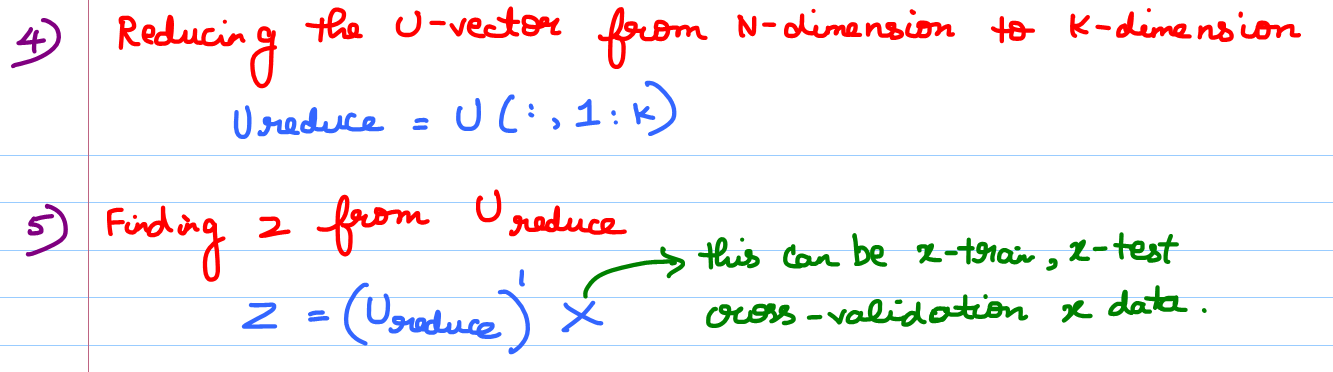 4) Reducing the U-vector from N-dimension to K-dimension
Ureduce = U(:, 1:k)
5) Finding z from Ureduce
this can be x-train, x-test
Z = (Ureduce)' X
cross-validation x data.